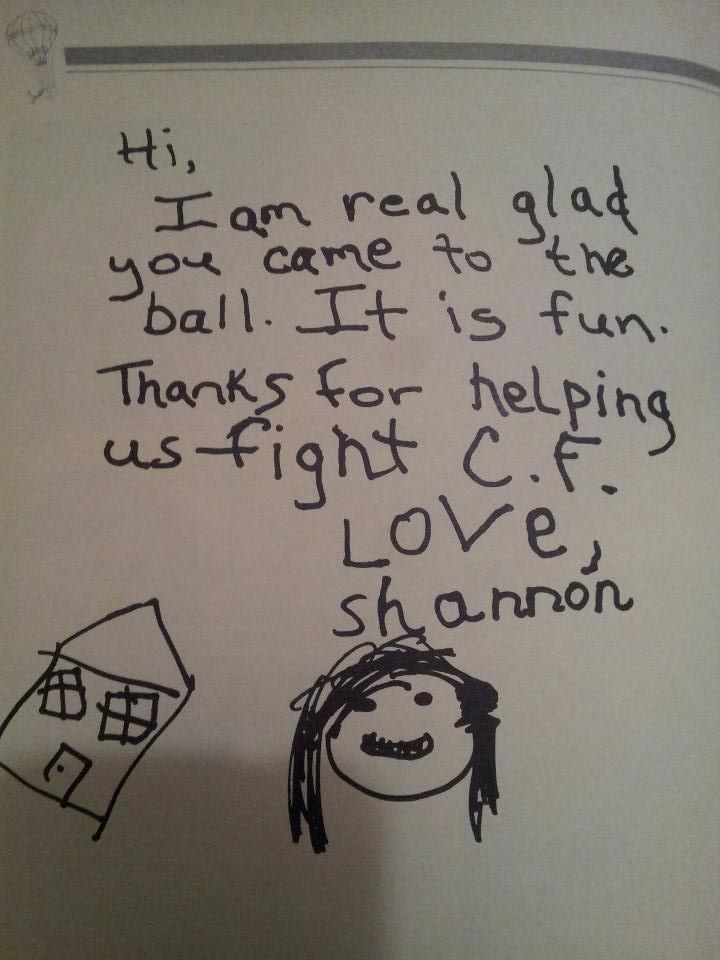 Hi,
I am real glad
you came to the
ball. It is fun.
Thanks for helping
us fight C.F.
LOVe,
shannon